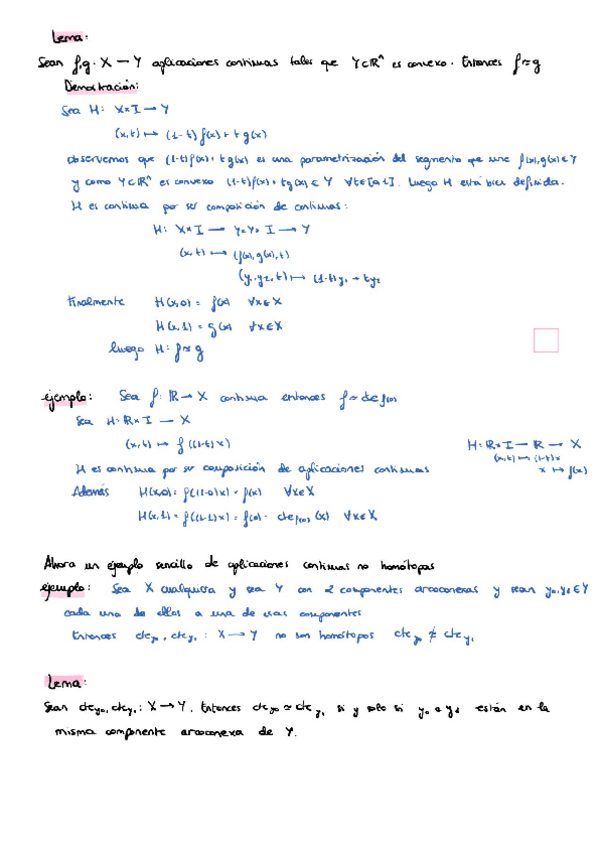 Lema:
Sean f,g: X → Y aplicaciones continuas tales que Y⊂ℝⁿ es convexo. Entonces f≃g
Demostración:
Sea H: X×I → Y
(x,t) ↦ (1-t) f(x) + t g(x)
observemos que (1-t)f(x) + tg(x) es una parametrización del segmento que une f(x), g(x) ∈ Y
y como Y⊂ℝⁿ es convexo (1-t)f(x) + tg(x) ∈ Y ∀t∈[0,1]. Luego H está bien definida.
H es continua por ser composición de continuas:
H: X×I → Y×Y×I → Y
(x,t) ↦ (f(x), g(x), t)
(y₁,y₂,t) ↦ (1-t)y₁ + ty₂
Finalmente H(x,0) = f(x) ∀x∈X
H(x,1) = g(x) ∀x∈X
luego H: f≃g
ejemplo: Sea f: ℝ → X continua entonces f≃cte f(0)
Sea H: ℝ×I → X
(x,t) ↦ f((1-t)x)
H: ℝ×I → ℝ → X
(x,t) ↦ (1-t)x
x ↦ f(x)
H es continua por ser composición de aplicaciones continuas
Además H(x,0) = f((1-0)x) = f(x) ∀x∈X
H(x,1) = f((1-1)x) = f(0) = cte f(0) (x) ∀x∈X
Ahora un ejemplo sencillo de aplicaciones continuas no homótopas
ejemplo: Sea X cualquiera y sea Y con 2 componentes arcoconexas y sean y₀,y₁ ∈ Y
cada uno de ellos a una de esas componentes
Entonces cte y₀, cte y₁ : X → Y no son homótopas cte y₀ ≄ cte y₁
Lema:
Sean cte y₀, cte y₁ : X → Y. Entonces cte y₀ ≃ cte y₁ si y solo si y₀ e y₁ están en la
misma componente arcoconexa de Y.